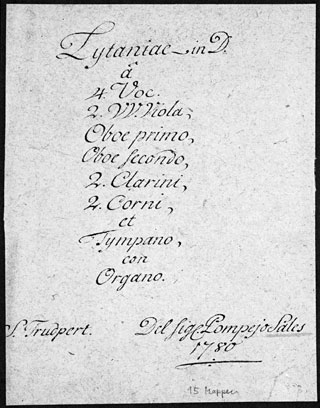 Lytaniae in D.
â
4. Voc.
2. VV. Viola,
Oboe primo,
Oboe secondo,
2. Clarini,
2. Corni,
et
Tympano,
con
Organo.
S. Trudpert. Del Sigr. Pompejo Sales
1780
15